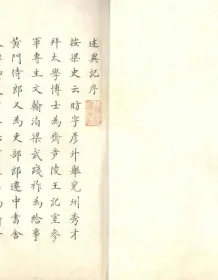 述異記序
按梁史云昉字彥升舉兗州秀才
拜太學博士為齊步陵王記室參
軍專主文翰洎梁武踐祚為給事
黃門侍郎又為吏部郎遷中書舍